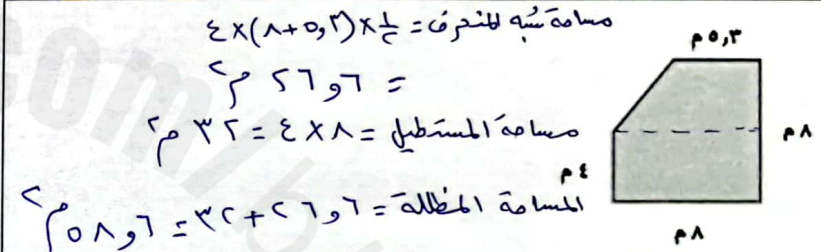 مساحة شبه المنحرف = ١/٢ × (٥,٣ + ٨) × ٤
= ٢٦,٦ م٢
مساحة المستطيل = ٨ × ٤ = ٣٢ م٢
المساحة المظللة = ٢٦,٦ + ٣٢ = ٥٨,٦ م٢
٥,٣ م
٨ م
٤ م
٨ م